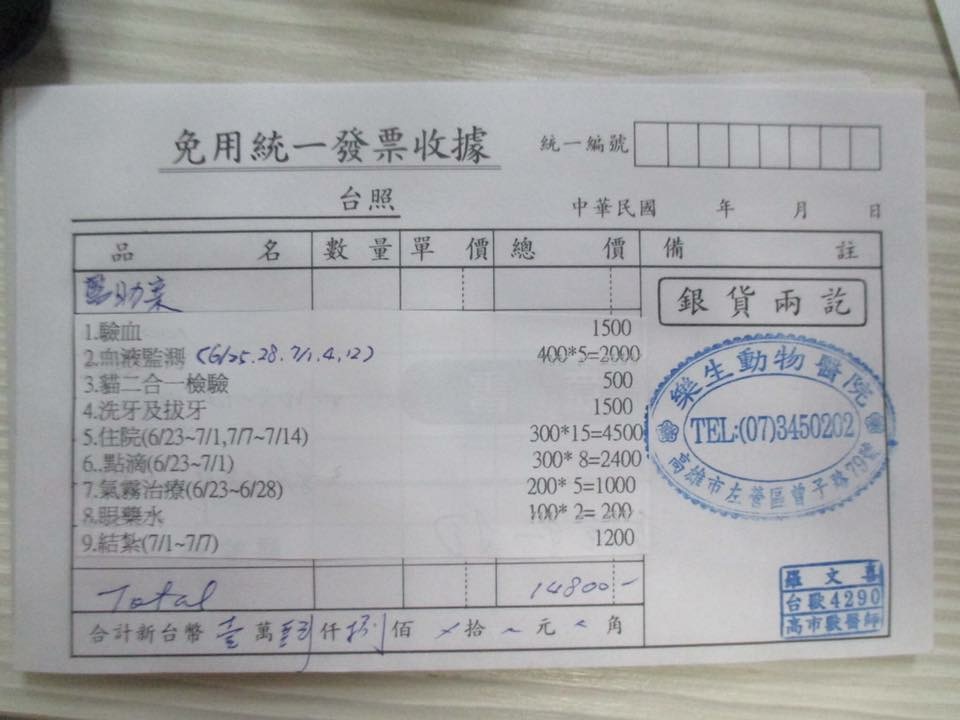 免用統一發票收據
統一編號
台照
中華民國 年 月 日
品名 數量 單價 總價 備註
銀貨兩訖
1.驗血 1500
2.血液監測 (6/25,28,7/1,4,12) 400*5=2000
3.貓二合一檢驗 500
4.洗牙及拔牙 1500
5.住院(6/23~7/1,7/7~7/14) 300*15=4500
6..點滴(6/23~7/1) 300* 8=2400
7.氣霧治療(6/23~6/28) 200* 5=1000
8.眼藥水 100* 2= 200
9.結紮(7/1~7/7) 1200
樂生動物醫院
TEL:(07)3450202
高雄市左營區曾子路79號
Total 14800-
合計新台幣 壹 萬 肆 仟 捌 佰 拾 元 角
羅文喜
台獸4290
高市獸醫師